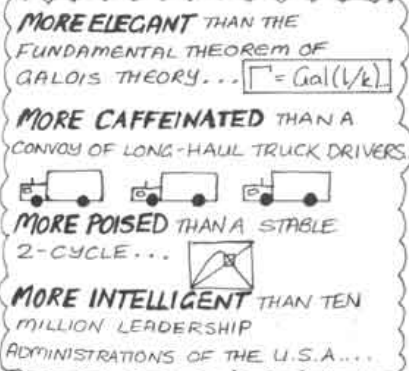 MORE ELEGANT THAN THE
FUNDAMENTAL THEOREM OF
GALOIS THEORY... Γ = Gal(L/k)...
MORE CAFFEINATED THAN A
CONVOY OF LONG-HAUL TRUCK DRIVERS
MORE POISED THAN A STABLE
2-CYCLE...
MORE INTELLIGENT THAN TEN
MILLION LEADERSHIP
ADMINISTRATIONS OF THE U.S.A....